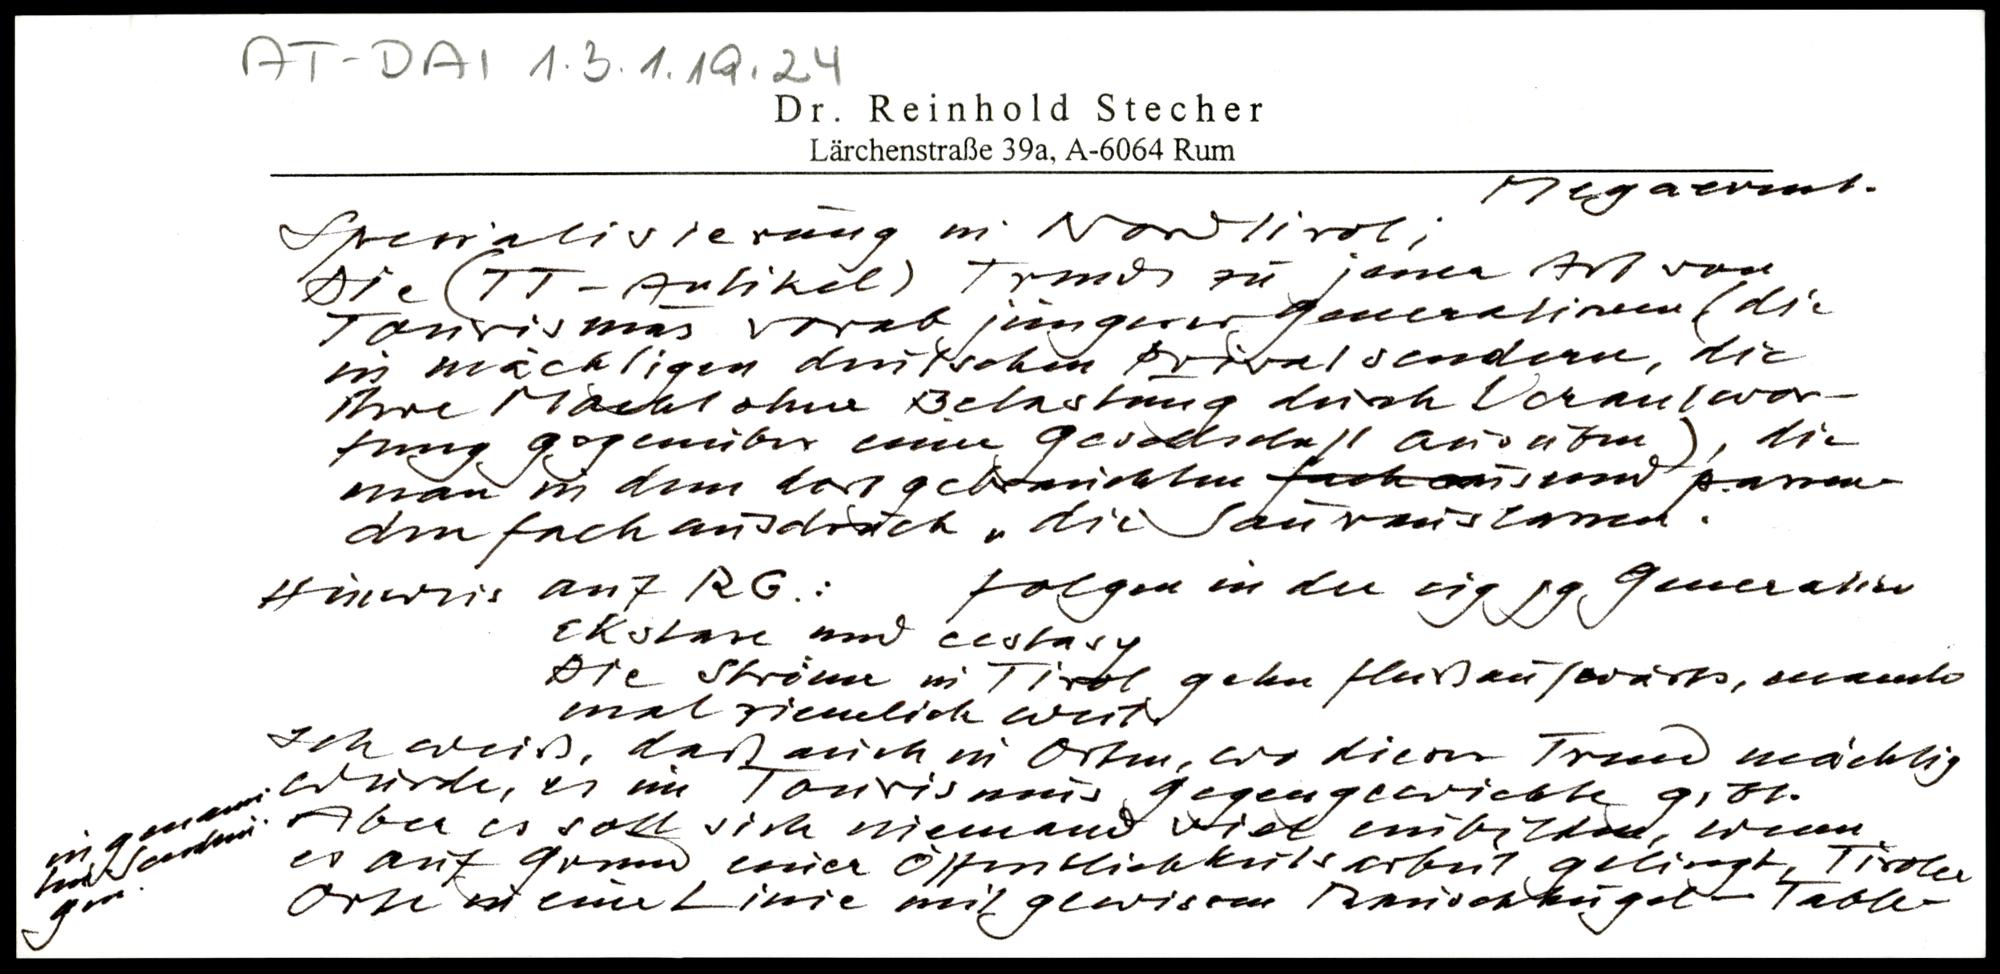 AT-DAI 1.3.1.19.24
Dr. Reinhold Stecher
Lärchenstraße 39a, A-6064 Rum
Megaevent.
Spezialisierung in Nordtirol;
Die (TT-Artikel) Trends zu jener Art von
Tourismus vorab jüngerer Generationen (die
in mächtigen deutschen Privatsendern, die
ihre Macht ohne Belastung durch Verantwor-
tung gegenüber einer Gesellschaft ausüben), die
man in dem dort gebrauchten und passen-
den Fachausdruck „die Sau rauslassen.
Hinweis auf RG.: Folgen in der eig jg Generation
Ekstase und ecstasy
Die Ströme in Tirol gehn flußaufwärts, manch
mal ziemlich weit
Ich weiß, daß auch in Orten, wo dieser Trend mächtig
wurde, es im Tourismus Gegengewichte gibt.
Aber es soll sich niemand viel einbilden, wenn
es auf Grund einer Öffentlichkeitsarbeit gelingt, Tiroler
Orte in eine Linie mit gewissen Rauschkugel-Table-
in genann
ten Sendun
gen